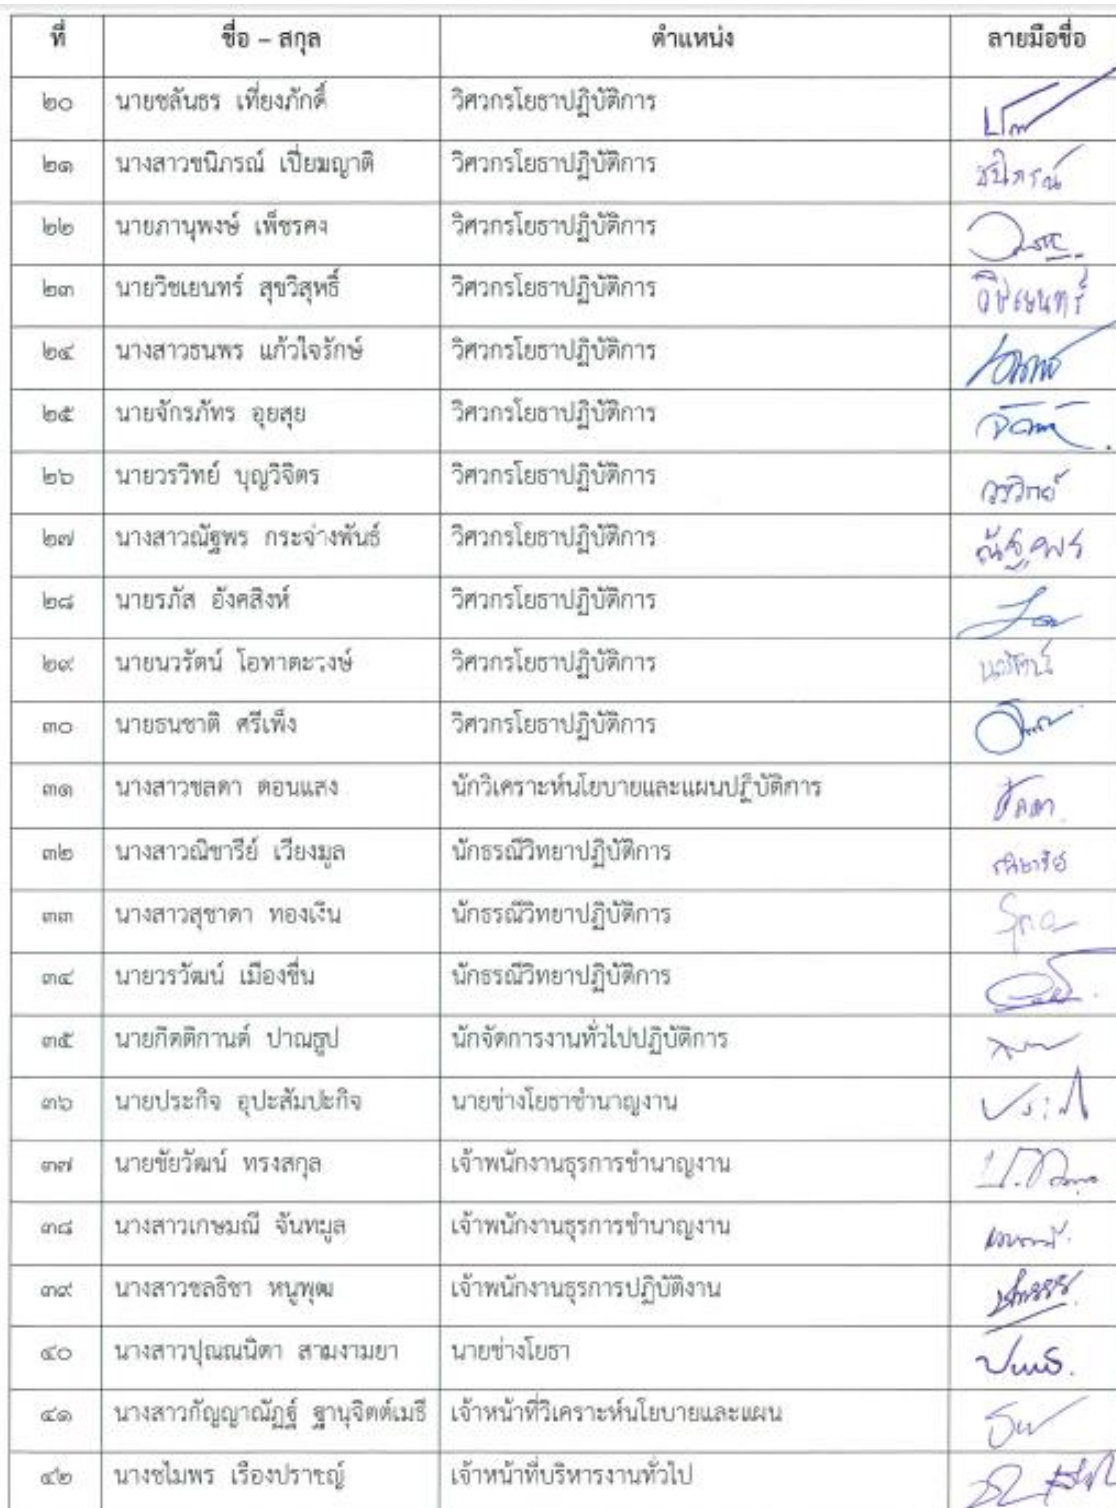 ที่ ชื่อ – สกุล ตำแหน่ง ลายมือชื่อ
๒๐ นายชลันธร เที่ยงภักดิ์ วิศวกรโยธาปฏิบัติการ
๒๑ นางสาวชนิภรณ์ เปี่ยมญาติ วิศวกรโยธาปฏิบัติการ ชนิภรณ์
๒๒ นายภานุพงษ์ เพ็ชรคง วิศวกรโยธาปฏิบัติการ
๒๓ นายวิชเยนทร์ สุขวิสุทธิ์ วิศวกรโยธาปฏิบัติการ วิชเยนทร์
๒๔ นางสาวธนพร แก้วใจรักษ์ วิศวกรโยธาปฏิบัติการ
๒๕ นายจักรภัทร อุยสุย วิศวกรโยธาปฏิบัติการ
๒๖ นายวรวิทย์ บุญวิจิตร วิศวกรโยธาปฏิบัติการ วรวิทย์
๒๗ นางสาวณัฐพร กระจ่างพันธ์ วิศวกรโยธาปฏิบัติการ ณัฐพร
๒๘ นายรภัส อังคสิงห์ วิศวกรโยธาปฏิบัติการ
๒๙ นายนวรัตน์ โอทาตะวงษ์ วิศวกรโยธาปฏิบัติการ นวรัตน์
๓๐ นายธนชาติ ศรีเพ็ง วิศวกรโยธาปฏิบัติการ
๓๑ นางสาวชลดา ดอนแสง นักวิเคราะห์นโยบายและแผนปฏิบัติการ ชลดา
๓๒ นางสาวณิชารีย์ เวียงมูล นักธรณีวิทยาปฏิบัติการ ณิชารีย์
๓๓ นางสาวสุชาดา ทองเงิน นักธรณีวิทยาปฏิบัติการ
๓๔ นายวรวัฒน์ เมืองชื่น นักธรณีวิทยาปฏิบัติการ
๓๕ นายกิตติกานต์ ปาณธูป นักจัดการงานทั่วไปปฏิบัติการ
๓๖ นายประกิจ อุปะสัมปะกิจ นายช่างโยธาชำนาญงาน
๓๗ นายชัยวัฒน์ ทรงสกุล เจ้าพนักงานธุรการชำนาญงาน
๓๘ นางสาวเกษมณี จันทมูล เจ้าพนักงานธุรการชำนาญงาน
๓๙ นางสาวชลธิชา หนูพุฒ เจ้าพนักงานธุรการปฏิบัติงาน
๔๐ นางสาวปุณณนิตา สามงามยา นายช่างโยธา
๔๑ นางสาวกัญญาณัฏฐ์ ฐานุจิตต์เมธี เจ้าหน้าที่วิเคราะห์นโยบายและแผน
๔๒ นางชไมพร เรืองปราชญ์ เจ้าหน้าที่บริหารงานทั่วไป